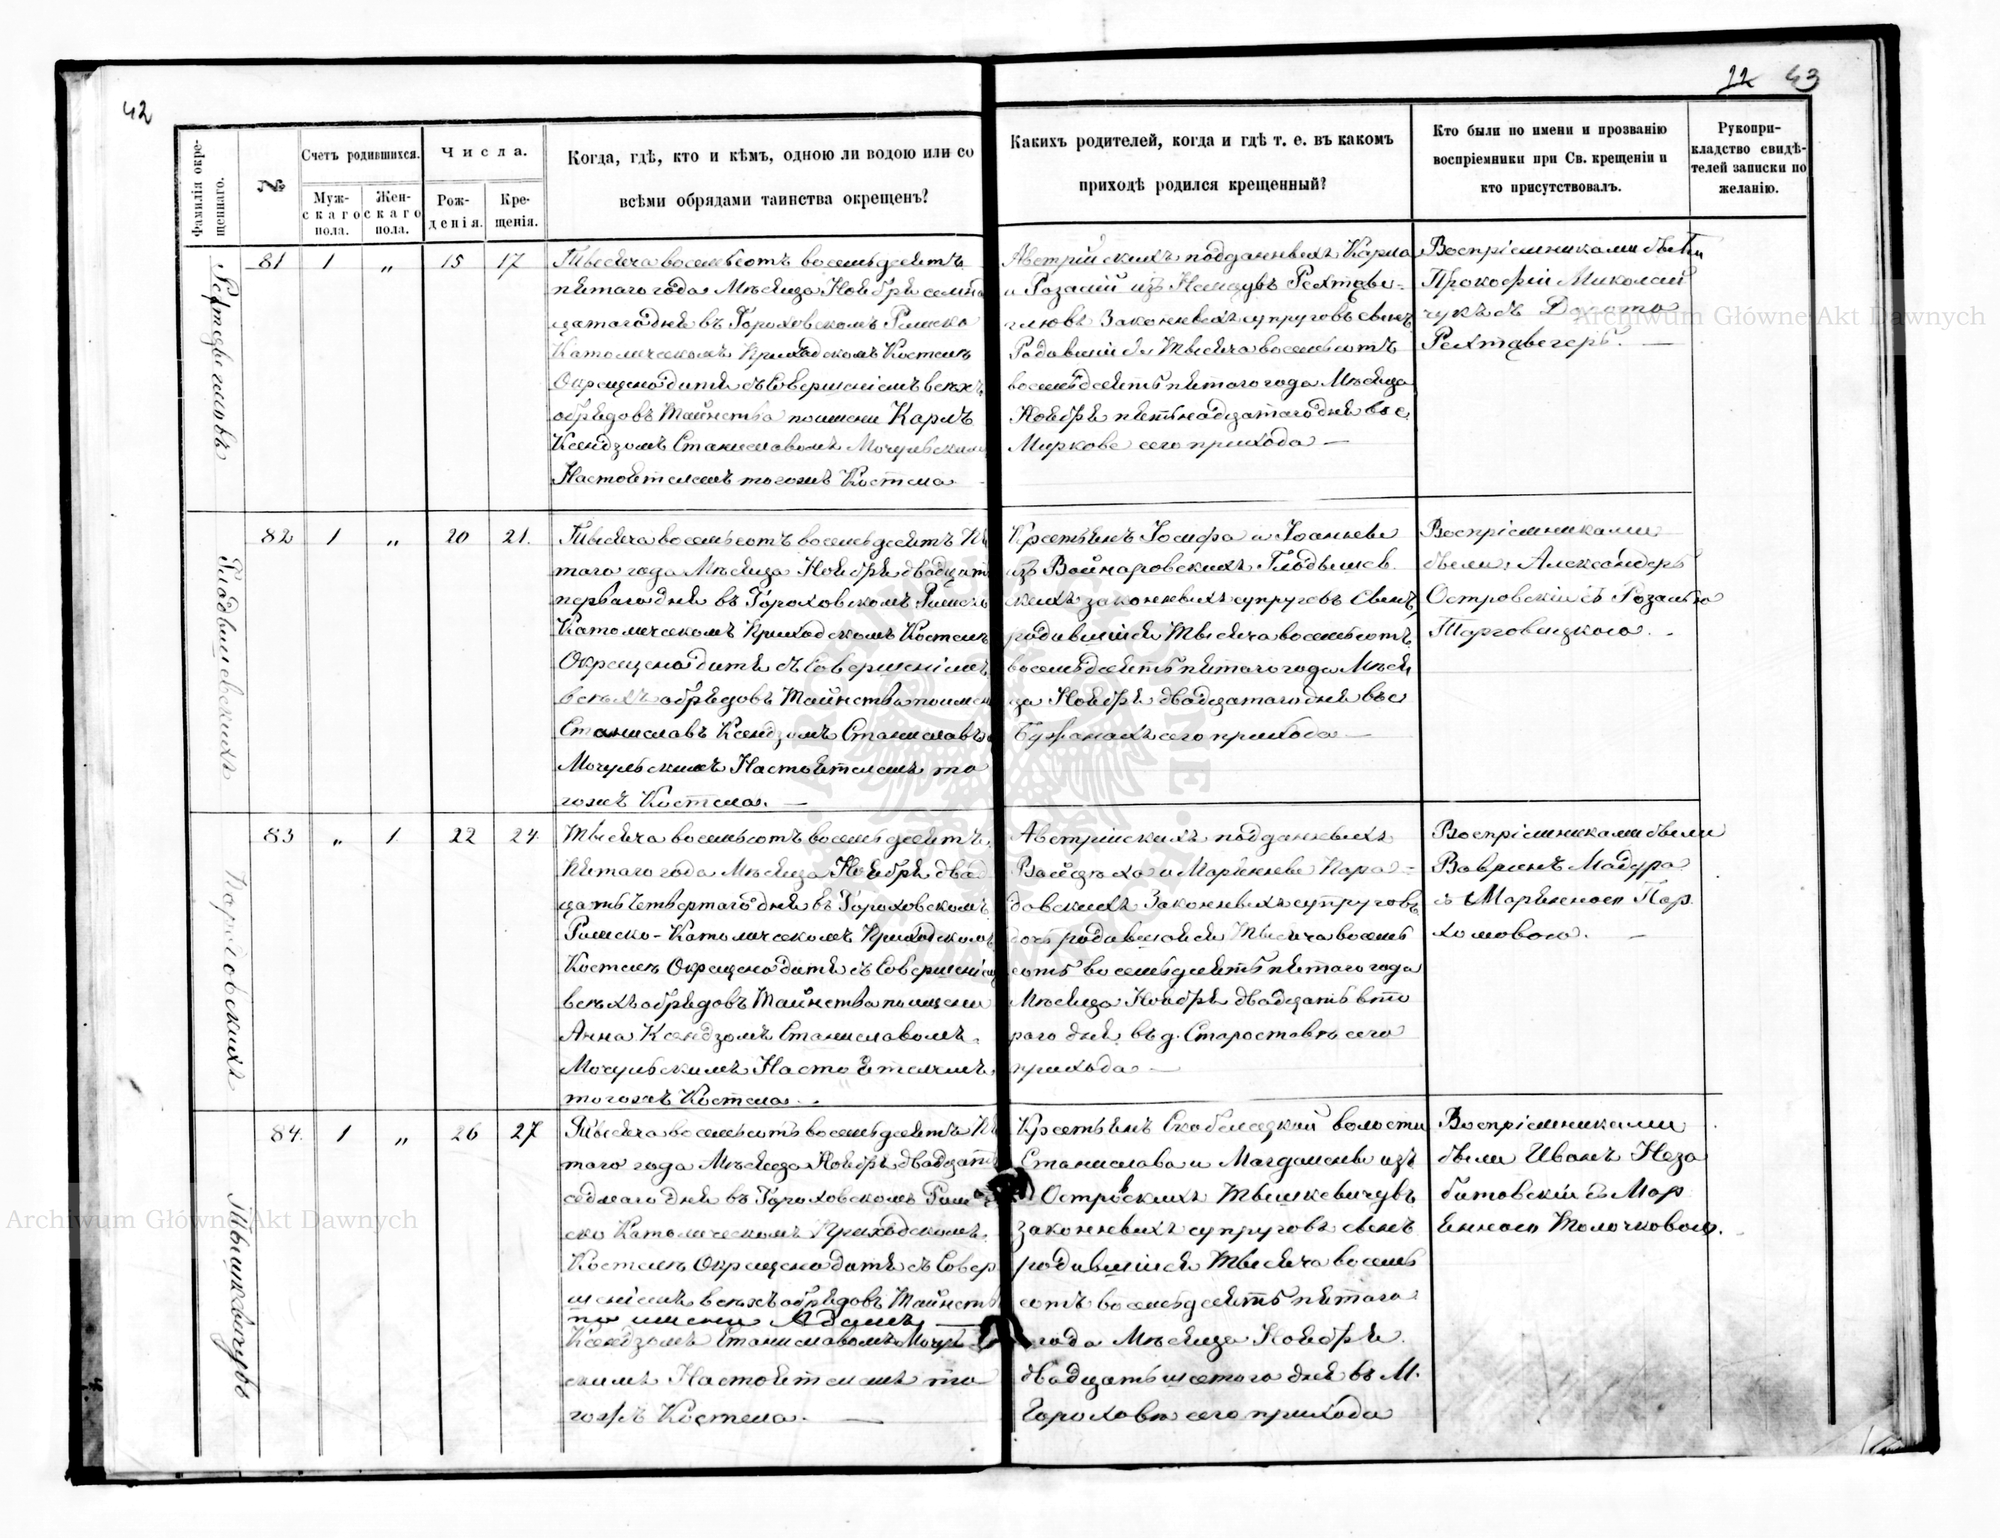 42
22 43
Фамилія окре-
щеннаго.
№
Счетъ родившихся.
Муж-
скаго
пола.
Жен-
скаго
пола.
Числа.
Рож-
денія.
Кре-
щенія.
Когда, гдѣ, кто и кѣмъ, одною ли водою или со
всѣми обрядами таинства окрещенъ?
Какихъ родителей, когда и гдѣ т. е. въ какомъ
приходѣ родился крещенный?
Кто были по имени и прозванію
воспріемники при Св. крещеніи и
кто присутствовалъ.
Рукопри-
кладство свидѣ-
телей записки по
желанію.
81 1 „ 15 17
Тысяча восемьсотъ восемьдесятъ
пятаго года Мѣсяца Ноября семна
цатаго дня въ Гороховскомъ Римско
Католическомъ Приходскомъ Костелѣ
Окрещено дитя съ Совершеніемъ всѣхъ
обрядовъ Таинства по имени Карлъ
Ксендзомъ Станиславомъ Мочульскимъ
Настоятелемъ тогожъ Костела
Австрійскихъ подданныхъ Карла
и Розалій изъ
Законныхъ супруговъ сынъ
Родившійся Тысяча восемьсотъ
восемьдесятъ пятаго года Мѣсяца
Ноября пятнадцатаго дня въ с.
Миркове сего прихода —
Воспріемниками были
Прокофій Миколай
чукъ съ
82 1 „ 20 21.
Тысяча восемьсотъ восемьдесятъ пя
таго года Мѣсяца Ноября двадцать
перваго дня въ Гороховскомъ Римско
Католическомъ Приходскомъ Костелѣ
Окрещено дитя съ Совершеніемъ
всѣхъ обрядовъ Таинства по имени
Станиславъ Ксендзомъ Станиславомъ
Мочульскимъ Настоятелемъ то
гожъ Костела. —
Крестьянъ Іосифа и Іоанны
изъ Войнаровскихъ
скихъ законныхъ супруговъ Сынъ,
родившійся Тысяча восемьсотъ
восемьдесятъ пятаго года Мѣся
ца Ноября двадцатаго дня въ с.
Бужанахъ сего прихода —
Воспріемниками
были Александеръ
Островскій съ Розалію
Торговицкою.
83 „ 1 22 24
Тысяча восемьсотъ восемьдесятъ
пятаго года Мѣсяца Ноября двад
цать четвертаго дня въ Гороховскомъ
Римско-Католическомъ Приходскомъ
Костелѣ Окрещено дитя съ Совершеніемъ
всѣхъ обрядовъ Таинства по имени
Анна Ксендзомъ Станиславомъ
Мочульскимъ Настоятелемъ
тогожъ Костела.
Австрійскихъ подданныхъ
Войцѣха и Маріянны
Законныхъ супруговъ
дочь родившойся Тысяча восемь
сотъ восемьдесятъ пятаго года
Мѣсяца Ноября двадцать вто
раго дня въ д. Староставѣ сего
прихода —
Воспріемниками были
Мадура
съ Маріянною
84. 1 „ 26 27
Тысяча восемьсотъ восемьдесятъ пя
таго года Мѣсяца Ноября двадцать
седмаго дня въ Гороховскомъ Рим
ско Католическомъ Приходскомъ
Костелѣ Окрещено дитя съ Совер
шеніемъ всѣхъ обрядовъ Таинств
по имени Адамъ
Ксендзомъ Станиславомъ Мочуль
скимъ Настоятелемъ то
гожъ Костела. —
Крестьянъ Скобелецкой волости
Станислава и Магдалены изъ
Островскихъ Тышкевичувъ
законныхъ супруговъ сынъ
родившійся Тысяча восемь
сотъ восемьдесятъ пятаго
года Мѣсяца Ноября
двадцать шестого дня въ М.
Гороховѣ сего прихода
Воспріемниками
были Иванъ Неза
битовскій съ Мар
янною Толочковою.
Тышкевичувъ
Archiwum Główne Akt Dawnych
Archiwum Główne Akt Dawnych